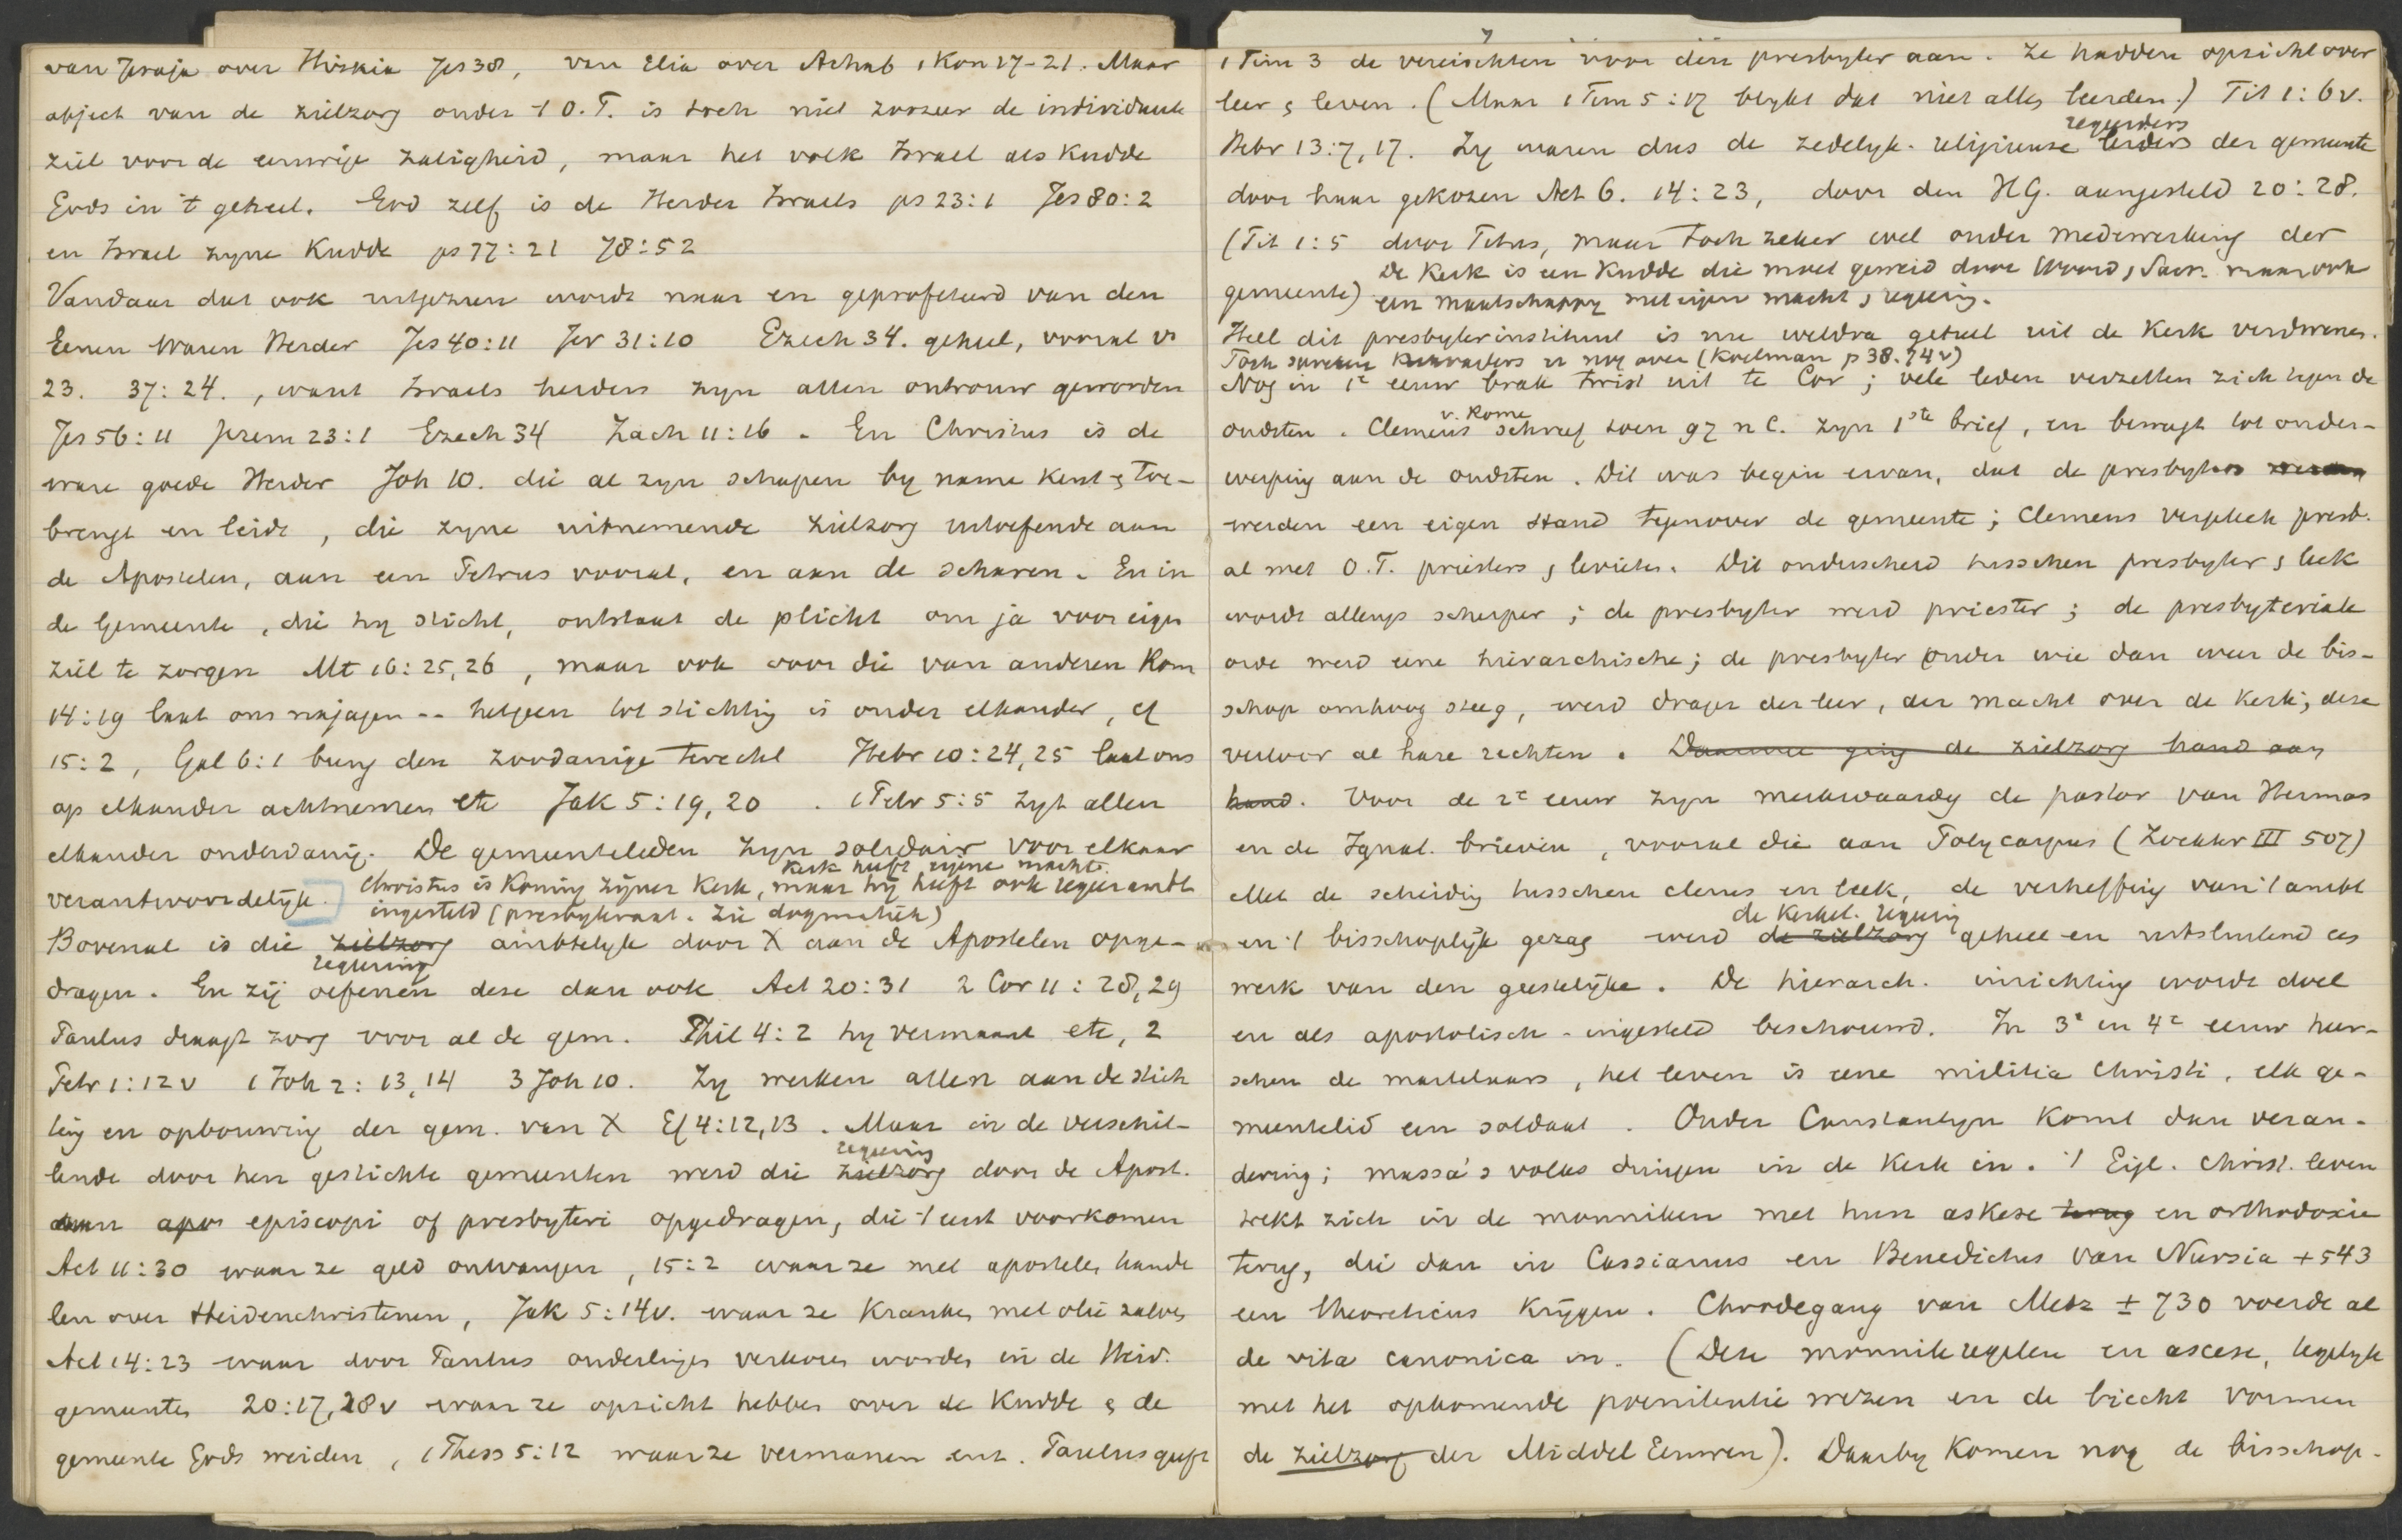 van Jesaja over Hiskia Jes 38, van Elia over Achab 1 Kon 17-21. Maar
object van de zielzorg onder 't O.T. is toch niet zoozeer de individueele
ziel voor de eeuwige zaligheid, maar het volk Israel als Kudde
Gods in 't geheel. God zelf is de Herder Israels ps 23:1 Jes 80:2
en Israel zyne Kudde ps 77:21 78:52
Vandaar dat ook uitgezien wordt naar en geprofeteerd van den
Eenen Waren Herder Jes 40:11 Jer 31:10 Ezech 34. geheel, vooral vs
23. 37:24., want Israels herders zyn allen ontrouw geworden
Jes 56:11 Jerem 23:1 Ezech 34 Zach 11:16. En Christus is de
ware goede Herder Joh 10. die al zyn schapen by name kent & toe-
brengt en leidt, die zyne uitnemende zielzorg uitoefende aan
de Apostelen, aan een Petrus vooral, en aan de scharen. En in
de Gemeente, die hy sticht, ontstaat de plicht om ja voor eigen
ziel te zorgen Mt 16:25,26, maar ook voor die van anderen Rom
14:19 laat ons najagen -- hetgeen tot stichting is onder elkander, cf
15:2, Gal 6:1 breng den zoodanige terecht Hebr 10:24,25 laat ons
op elkander achtnemen etc Jak 5:19,20. 1 Petr 5:5 zyt allen
elkander onderdanig. De gemeenteleden zyn solidair voor elkaar
Kerk heeft eigene macht.
verantwoordelijk. Christus is Koning zijner Kerk, maar hij heeft ook regeerambt
ingesteld (presbyteraat. Zie dogmatiek)
Bovenal is die zielzorg ambtelyk door X aan de Apostelen opge-
regeering
dragen. En zij oefenen deze dan ook Act 20:31 2 Cor 11:28,29
Paulus draagt zorg voor al de gem. Phil 4:2 hy vermaant etc, 2
Petr 1:12v 1 Joh 2:13,14 3 Joh 10. Zy werken allen aan de stich
ting en opbouwing der gem. van X Ef 4:12,13. Maar in de verschil-
regeering
lende door hen gestichte gemeenten werd die zielzorg door de Apost.
aan apos episcopi of presbyteri opgedragen, die 't eerst voorkomen
Act 11:30 waar ze geld ontvangen, 15:2 waar ze met apostelen hande
len over Heidenchristenen, Jak 5:14v. waar ze kranken met olie zalven
Act 14:23 waar door Paulus ouderlingen verkoren worden in de Heid.
gemeenten 20:17,28v waar ze opzicht hebben over de Kudde & de
gemeente Gods weiden, 1 Thess 5:12 waar ze vermanen enz. Paulus geeft
1 Tim 3 de vereischten voor den presbyter aan. Ze hadden opzicht over
leer & leven. (Maar 1 Tim 5:17 blykt dat niet allen leerden.) Tit 1:6v.
regeerders
Hebr 13:7,17. Zy waren dus de zedelyk-religieuse leiders der gemeente
door haar gekozen Act 6. 14:23, door den HG. aangesteld 20:28.
(Tit 1:5 door Titus, maar toch zeker wel onder medewerking der
De Kerk is een Kudde die moet geweid door Woord & Sacr. maar ook
gemeente) een maatschappy met eigen macht & regeering.
Heel dit presbyterinstituut is nu weldra geheel uit de Kerk verdwenen.
Toch er nog over (Koelman p 38.74v)
Nog in 1e eeuw brak twist uit te Cor; vele leden verzetten zich tegen de
v. Rome
oudsten. Clemens schreef toen 97 n C. zyn 1ste brief, en beweegt tot onder-
werping aan de oudsten. Dit was begin ervan, dat de presbyters werden
werden een eigen stand tegenover de gemeente; Clemens vergeleek presb.
al met O.T. priesters & levieten. Dit onderscheid tusschen presbyter & leek
wordt allengs scherper; de presbyter werd priester; de presbyteriale
orde werd eene hierarchische; de presbyter onder wie dan weer de bis-
schop omhoog steeg, werd drager der leer, der macht over de Kerk; deze
verloor al hare rechten. Daarmee ging de zielzorg hand aan
hand. Voor de 2e eeuw zyn merkwaardig de pastor van Hermas
en de Ignat. brieven, vooral die aan Polycarpus (Zöckler III 507)
Met de scheiding tusschen clerus en leek, de verheffing van 't ambt
de Kerkel. regeering
en 't bisschoplijk gezag werd de zielzorg geheel en uitsluitend als
werk van den geestelijke. De hierarch. inrichting wordt doel
en als apostolisch-ingesteld beschouwd. In 3e en 4e eeuw heer-
schen de martelaars, het leven is eene militia Christi, elk ge-
meentelid een soldaat. Onder Constantyn komt dan veran-
dering; massa's volks dringen in de Kerk in. 't Eigl. christ. leven
trekt zich in de monniken met hun askese terug en orthodoxie
terug, die dan in Cassianus en Benedictus van Nursia +543
een theoreticus krijgen. Chrodegang van Metz ± 730 voerde al
de vita canonica in. (Deze monnikregelen en ascese, tegelyk
met het opkomende poenitentie wezen en de biecht vormen
de zielzorg der Middel Eeuwen). Daarby komen nog de bisschop-